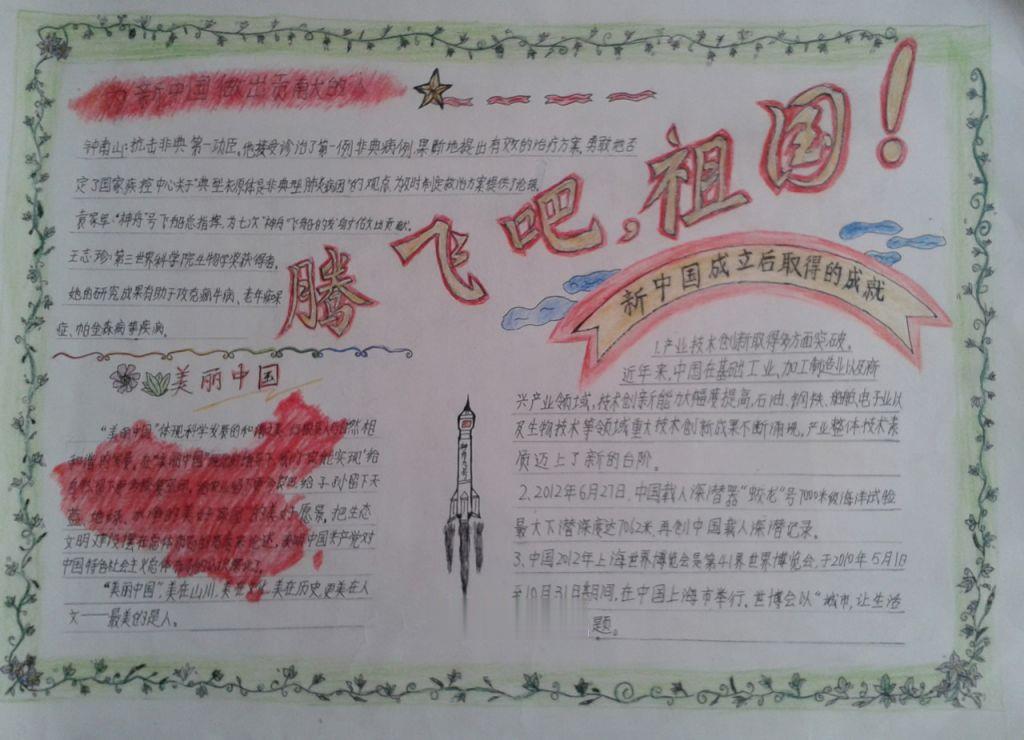 为新中国做出贡献的人
钟南山:抗击非典第一功臣,他接受诊治了第一例非典病例,果断地提出有效的治疗方案,勇敢地否
定了国家疾控中心关于"典型衣原体是非典型肺炎病因"的观点,为及时制定救治方案提供了论据。
袁家军:"神舟"号飞船总指挥,为七次"神舟"飞船的发射做出贡献。
王志珍:第三世界科学院生物学奖获得者,
她的研究成果有助于攻克疯牛病、老年痴呆
症、帕金森病等疾病。
腾飞吧,祖国!
美丽中国
"美丽中国"体现科学发展的和谐之美,
和谐的 在"美丽中国" 实现"给
给子孙留下天
蓝、地绿、水净的美好家园"的美好愿景,把生态
文明建设摆在总体布局的高度来论述,表明中国共产党对
中国特色社会主义总体布局的认识深化了。
"美丽中国",美在山川,美在文化,美在历史,更美在人
文——最美的是人。
新中国成立后取得的成就
1.产业技术创新取得多方面突破。
近年来,中国在基础工业、加工制造业以及新
兴产业领域,技术创新能力大幅度提高,石油、钢铁、船舶、电子业以
及生物技术等领域重大技术创新成果不断涌现,产业整体技术素
质迈上了新的台阶。
2.2012年6月27日,中国载人深潜器"蛟龙"号7000米级海洋试验
最大下潜深度达7062米,再创中国载人深潜记录。
3.中国2012年上海世界博览会是第41界世界博览会,于2010年5月1日
至10月31日期间,在中国上海市举行。世博会以"城市,让生活
题。